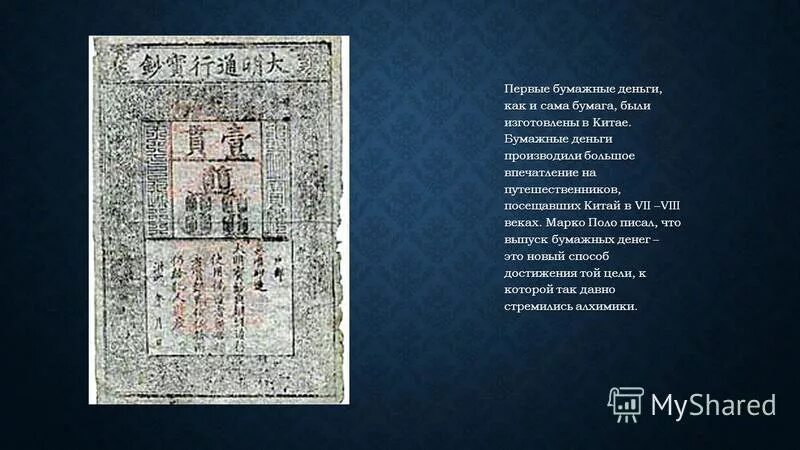 鈔寳行通明大
貫壹
Первые бумажные деньги,
как и сама бумага, были
изготовлены в Китае.
Бумажные деньги
производили большое
впечатление на
путешественников,
посещавших Китай в VII –VIII
веках. Марко Поло писал, что
выпуск бумажных денег –
это новый способ
достижения той цели, к
которой так давно
стремились алхимики.
MyShared